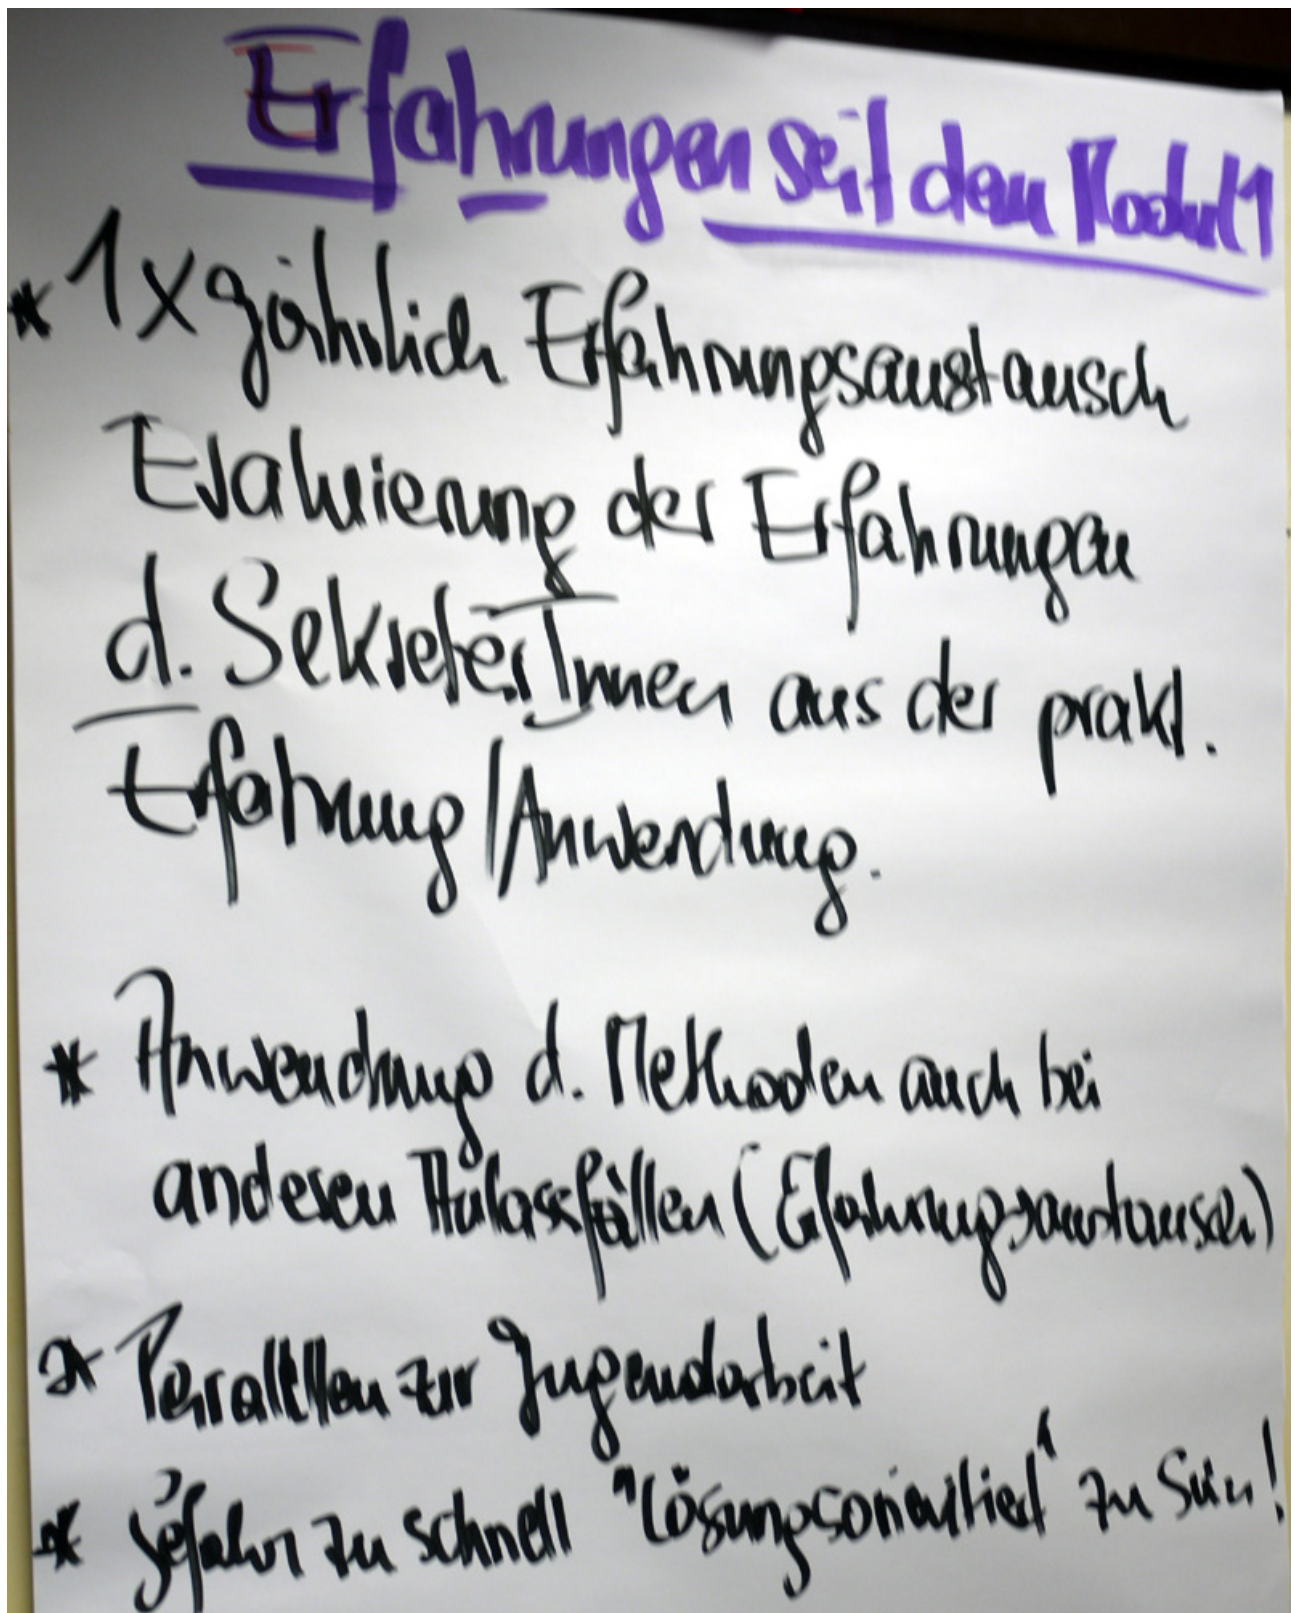 Erfahrungen seit dem Modul 1
* 1x jährlich Erfahrungsaustausch
Evaluierung der Erfahrungen
d. SekreterInnen aus der prakt.
Erfahrung/Anwendung.
* Anwendung d. Methoden auch bei
anderen Anlassfällen (Erfahrungsaustausch)
* Parallelen zur Jugendarbeit
* Gefahr zu schnell "lösungsorientiert" zu sein!